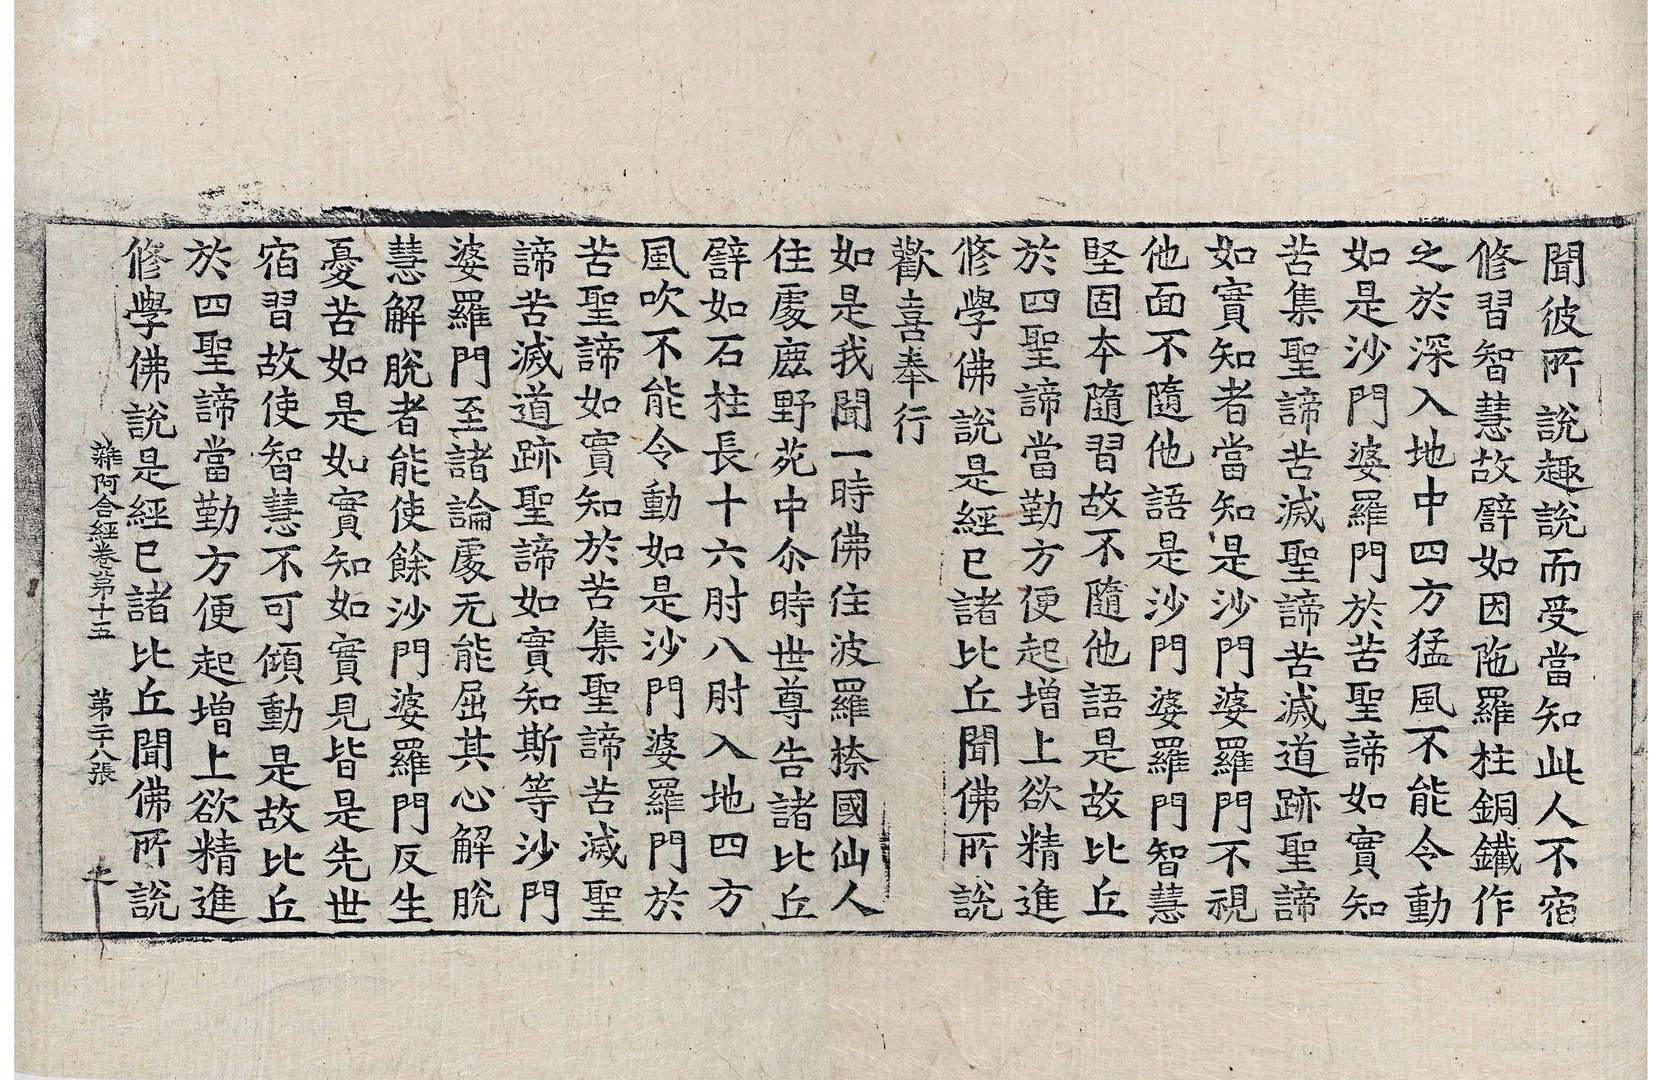 聞彼所說趣說而受當知此人不宿
修習智慧故譬如因陁羅柱銅鐵作
之於深入地中四方猛風不能令動
如是沙門婆羅門於苦聖諦如實知
苦集聖諦苦滅聖諦苦滅道跡聖諦
如實知者當知是沙門婆羅門不視
他面不隨他語是沙門婆羅門智慧
堅固本隨習故不隨他語是故比丘
於四聖諦當勤方便起增上欲精進
修學佛說是經已諸比丘聞佛所說
歡喜奉行
如是我聞一時佛住波羅㮈國仙人
住處鹿野苑中尒時世尊告諸比丘
譬如石柱長十六肘八肘入地四方
風吹不能令動如是沙門婆羅門於
苦聖諦如實知於苦集聖諦苦滅聖
諦苦滅道跡聖諦如實知斯等沙門
婆羅門至諸論處无能屈其心解脫
慧解脫者能使餘沙門婆羅門反生
憂苦如是如實知如實見皆是先世
宿習故使智慧不可傾動是故比丘
於四聖諦當勤方便起增上欲精進
修學佛說是經已諸比丘聞佛所說
雜阿含經卷第十五 第二十八張